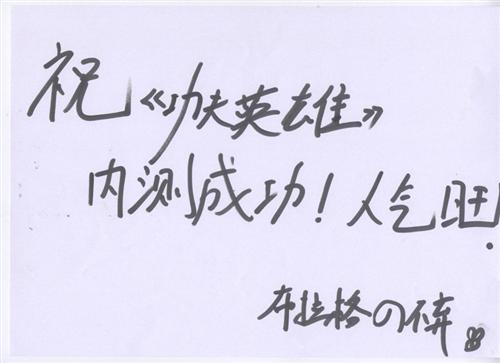 祝《功夫英雄》
内测成功！人气旺.
布拉格の